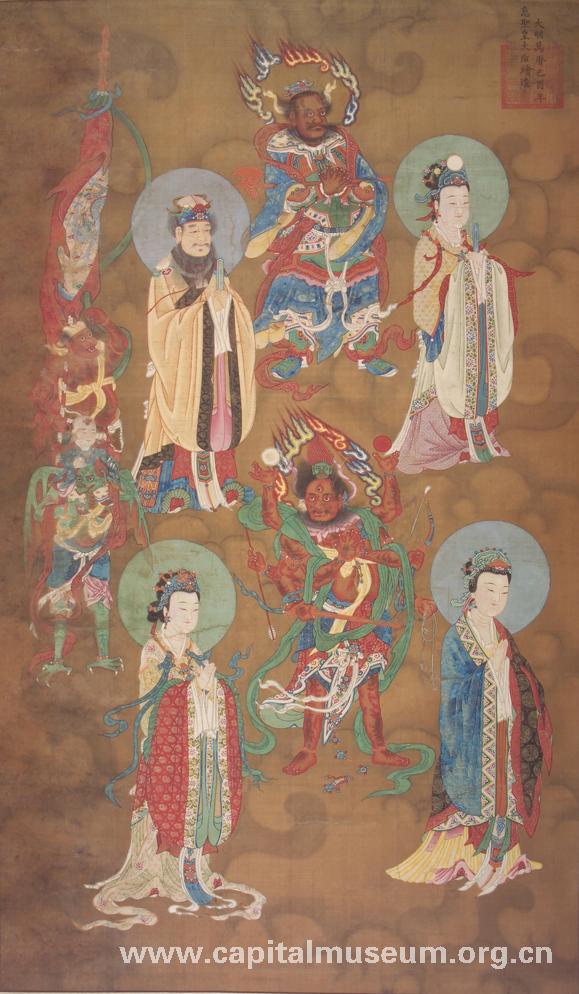 大明萬曆己酉年
慈聖皇太后繪造
www.capitalmuseum.org.cn